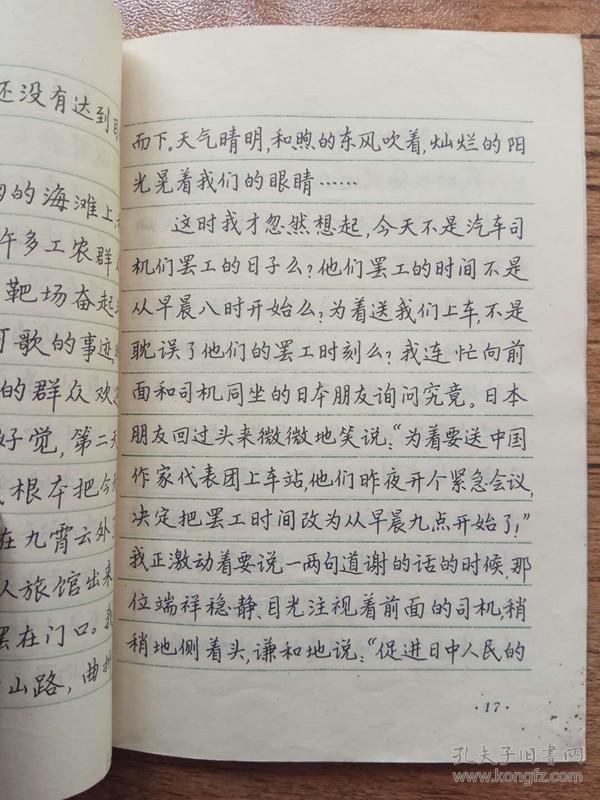 还没有达到
的海滩上
许多工农群
靶场奋起
可歌的事迹,
的群众欢
好觉,第二天
根本把今
在九霄云外
人旅馆出来
摆在门口。我
山路,曲
而下。天气晴明,和煦的东风吹着,灿烂的阳
光晃着我们的眼睛……
这时我才忽然想起,今天不是汽车司
机们罢工的日子么?他们罢工的时间不是
从早晨八时开始么?为着送我们上车,不是
耽误了他们的罢工时刻么?我连忙向前
面和司机同坐的日本朋友询问究竟。日本
朋友回过头来微微地笑说:“为着要送中国
作家代表团上车站,他们昨夜开个紧急会议,
决定把罢工时间改为从早晨九点开始了!”
我正激动着要说一两句道谢的话的时候,那
位端祥稳静、目光注视着前面的司机,稍
稍地侧着头,谦和地说:“促进日中人民的
·17·
孔夫子旧书网
www.kongfz.com